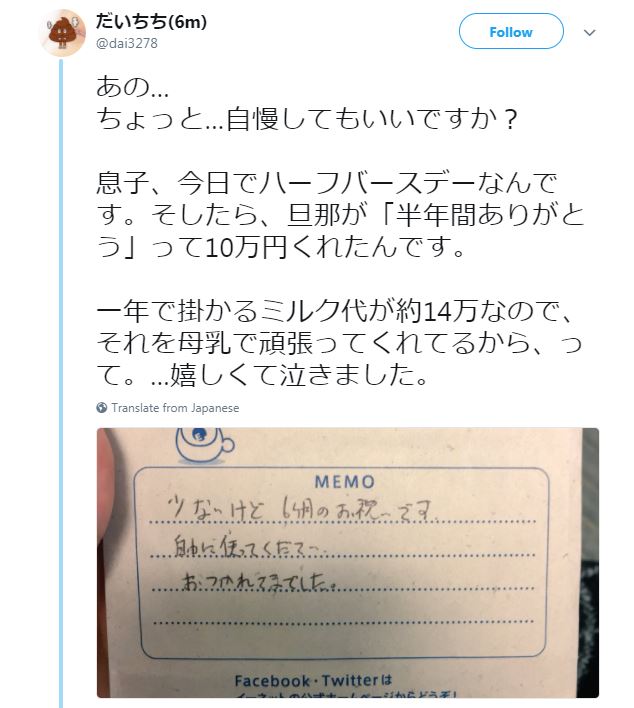 だいちち(6m)
@dai3278
Follow
あの...
ちょっと...自慢してもいいですか？
息子、今日でハーフバースデーなんで
す。そしたら、旦那が「半年間ありがと
う」って10万円くれたんです。
一年で掛かるミルク代が約14万なので、
それを母乳で頑張ってくれてるから、っ
て。...嬉しくて泣きました。
Translate from Japanese
MEMO
少ないけど 6ヶ月のお祝いです
自由に使ってください
おつかれさまでした。
Facebook・Twitterは
イーネットの公式ホームページからどうぞ！